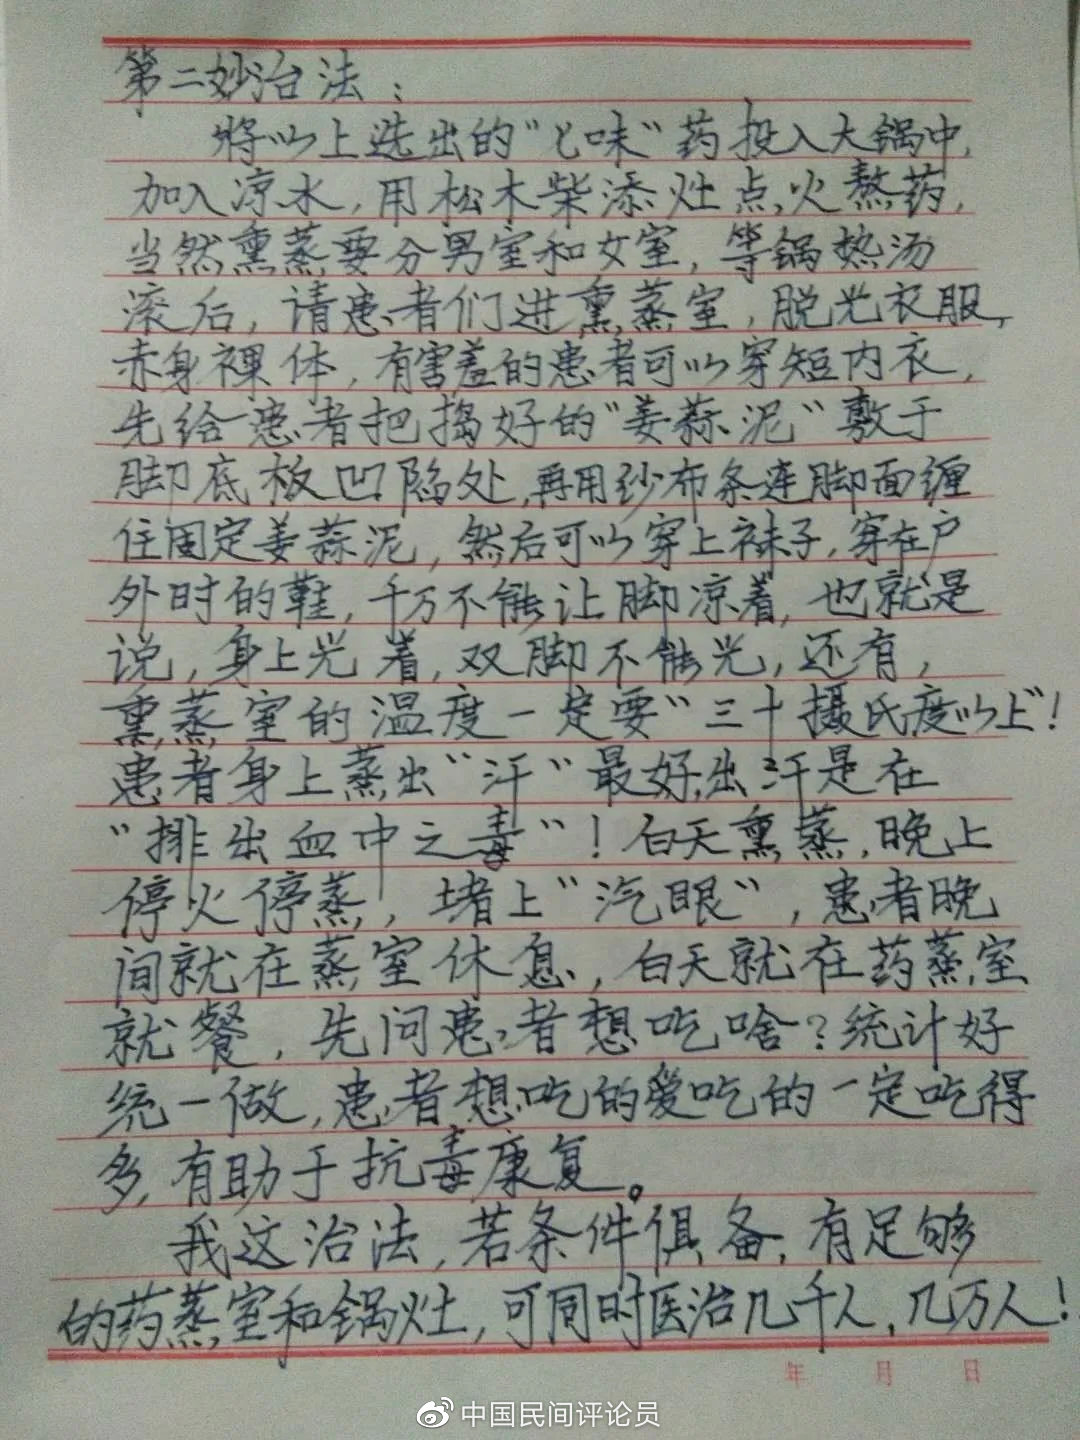 第二妙治法：
将以上选出的“七味”药投入大锅中，
加入凉水，用松木柴添灶点火熬药，
当然熏蒸要分男室和女室，等锅热汤
滚后，请患者们进熏蒸室，脱光衣服，
赤身裸体，有害羞的患者可以穿短内衣，
先给患者把捣好的“姜蒜泥”敷于
脚底板凹陷处，再用纱布条连脚面缠
住固定姜蒜泥，然后可以穿上袜子，穿在户
外时的鞋，千万不能让脚凉着，也就是
说，身上光着，双脚不能光，还有，
熏蒸室的温度一定要“三十摄氏度以上”！
患者身上蒸出“汗”最好，出汗是在
“排出血中之毒”！白天熏蒸，晚上
停火停蒸，堵上“汽眼”，患者晚
间就在蒸室休息，白天就在药蒸室
就餐，先问患者想吃啥？统计好
统一做，患者想吃的爱吃的一定吃得
多，有助于抗毒康复。
我这治法，若条件俱备，有足够
的药蒸室和锅灶，可同时医治几千人，几万人！
年 月 日
中国民间评论员